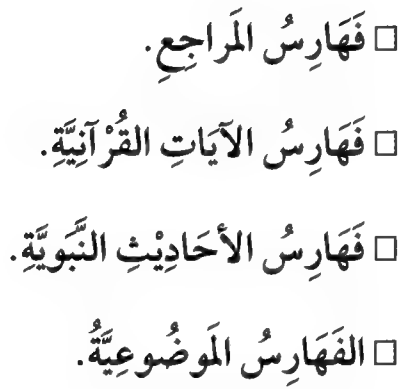 □ فَهَارِسُ المَراجِعِ.
□ فَهَارِسُ الآيَاتِ القُرْآنِيَّةِ.
□ فَهَارِسُ الأحَادِيْثِ النَّبَويَّةِ.
□ الفَهَارِسُ المَوضُوعِيَّةُ.